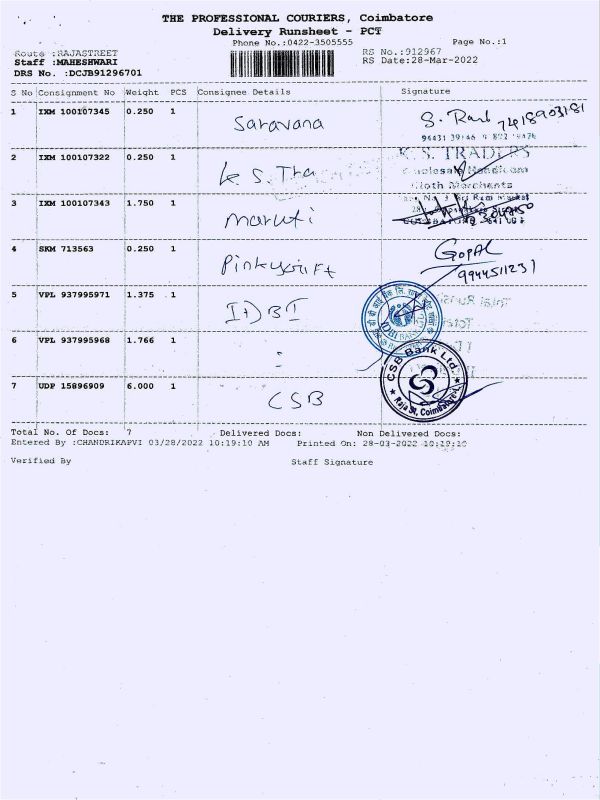 THE PROFESSIONAL COURIERS, Coimbatore
Delivery Runsheet - PCT
Phone No.:0422-3505555 Page No.:1
Route :RAJASTREET RS No.:912967
Staff :MAHESHWARI RS Date:28-Mar-2022
DRS No. :DCJB91296701
S No Consignment No Weight PCS Consignee Details Signature
1 IXM 100107345 0.250 1 Saravana
94431 39146
2 IXM 100107322 0.250 1 K S. Tra K. S. TRADERS
Cloth Merchants
3 IXM 100107343 1.750 1 maruti
4 SKM 713563 0.250 1 Pinkygift GOPAL
9944511231
5 VPL 937995971 1.375 1 IDBI
6 VPL 937995968 1.766 1 :
7 UDP 15896909 6.000 1 CSB CSB Bank Ltd.
Raja St, Coimbatore-1
Total No. Of Docs: 7 Delivered Docs: Non Delivered Docs:
Entered By :CHANDRIKAPVI 03/28/2022 10:19:10 AM Printed On: 28-03-2022 10:19:10
Verified By Staff Signature